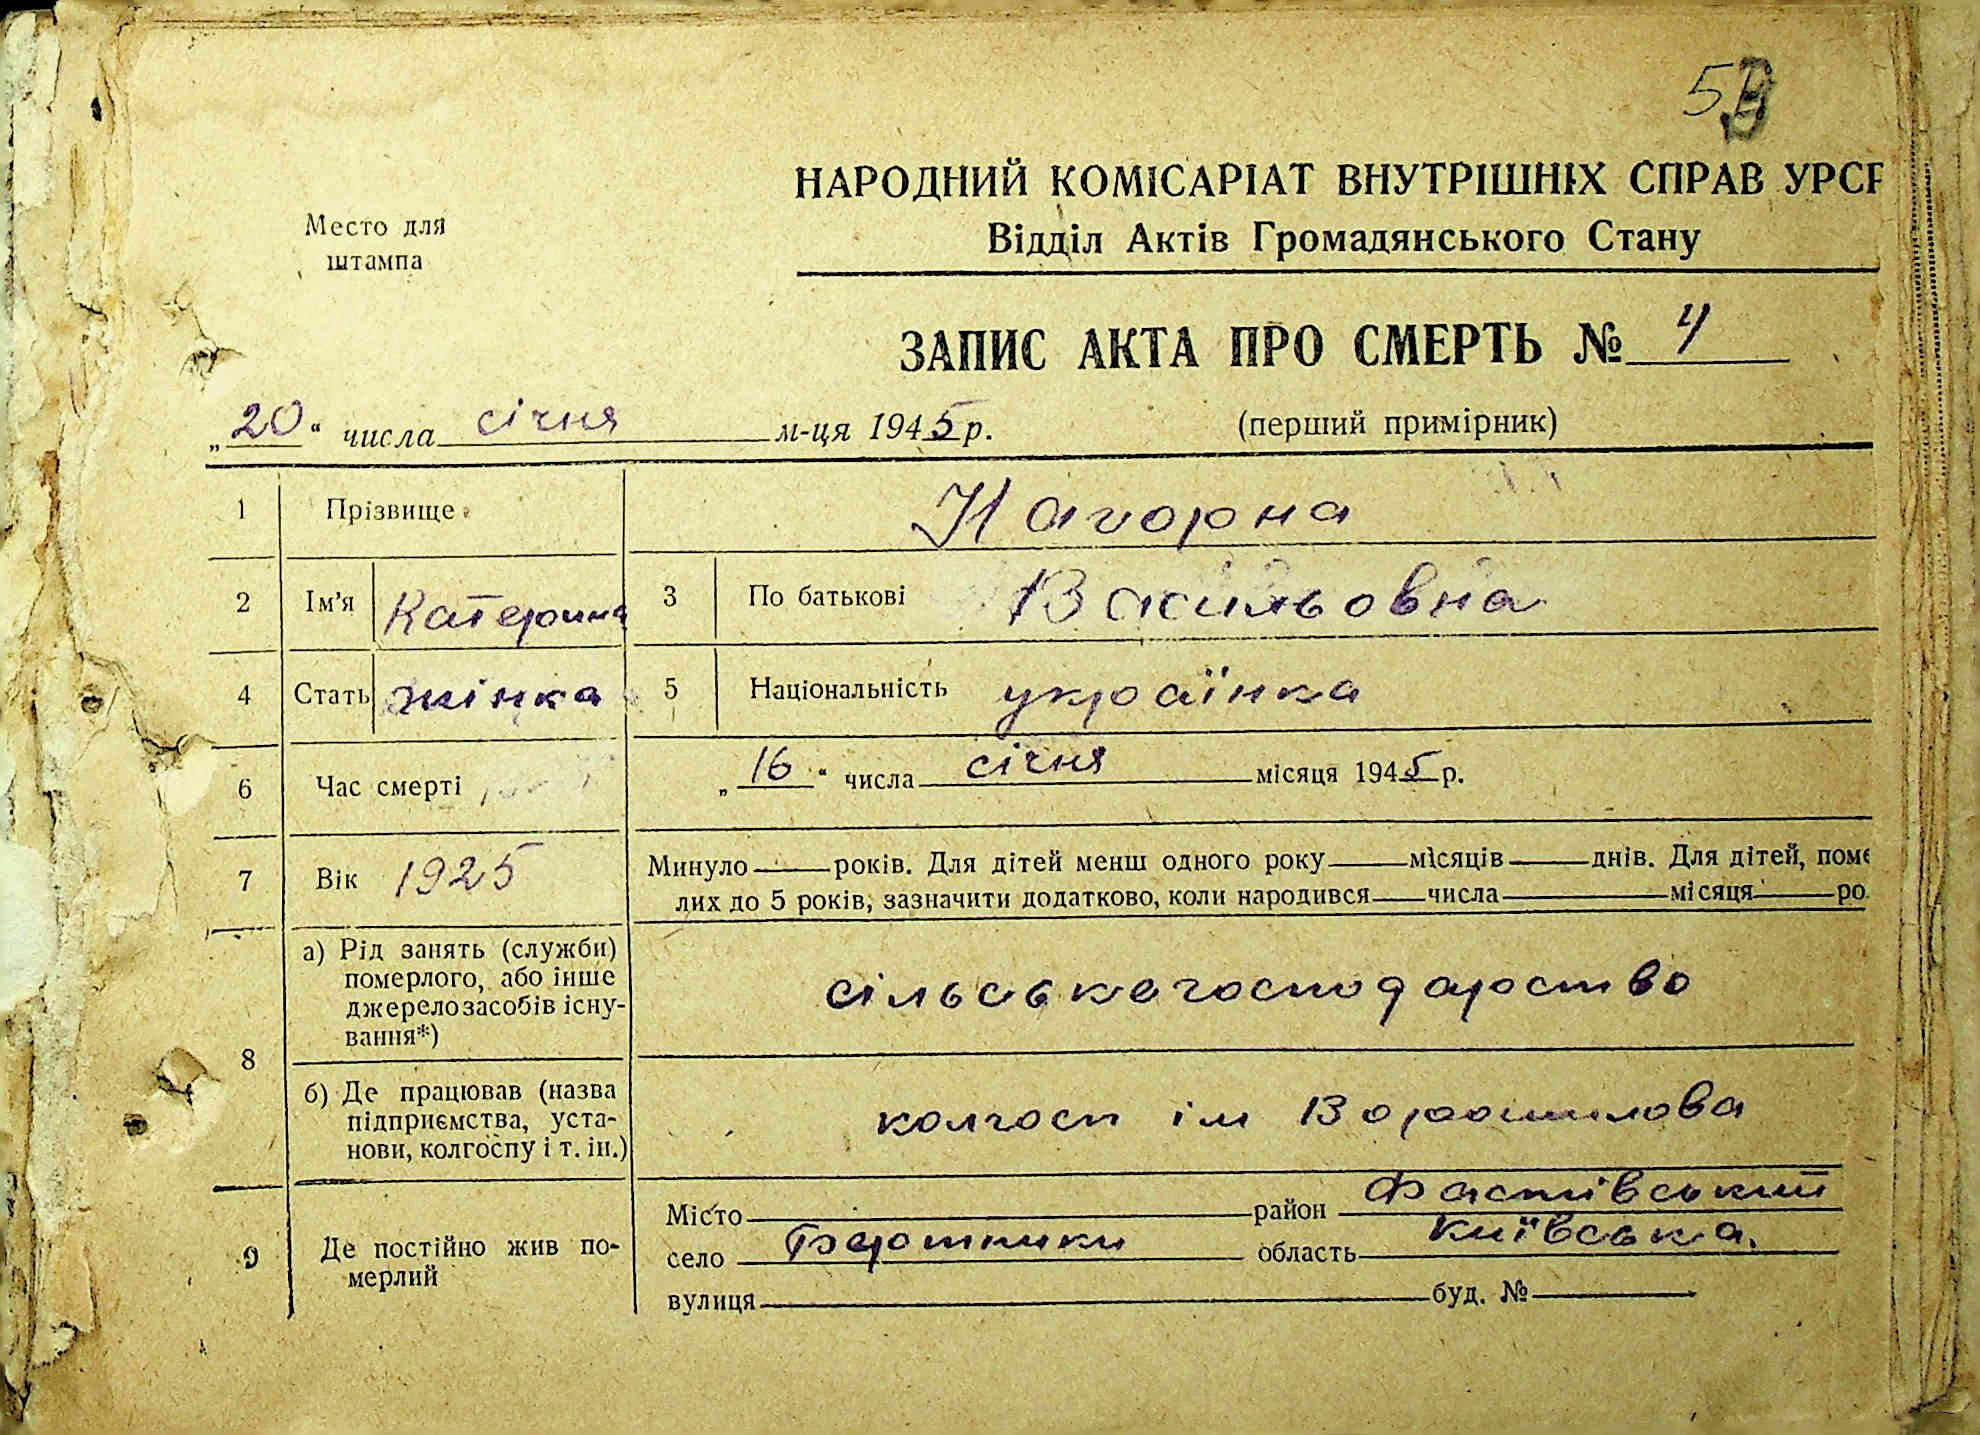 НАРОДНИЙ КОМІСАРІАТ ВНУТРІШНІХ СПРАВ УРСР
Место для
штампа
Відділ Актів Громадянського Стану
ЗАПИС АКТА ПРО СМЕРТЬ № 4
„20“ числа січня м-ця 1945 р. (перший примірник)
1 Прізвище Нагорна
2 Ім'я Катерина 3 По батькові Васильовна
4 Стать жінка 5 Національність українка
6 Час смерті „16“ числа січня місяця 1945 р.
7 Вік 1925 Минуло років. Для дітей менш одного року місяців днів. Для дітей, поме
лих до 5 років, зазначити додатково, коли народився числа місяця ро
8 а) Рід занять (служби)
померлого, або інше
джерело засобів існу-
вання*)
сільське господарство
б) Де працював (назва
підприємства, уста-
нови, колгоспу і т. ін.)
колгосп ім Ворошилова
9 Де постійно жив по-
мерлий
Місто район Фастівський
село область Київська.
вулиця буд. №